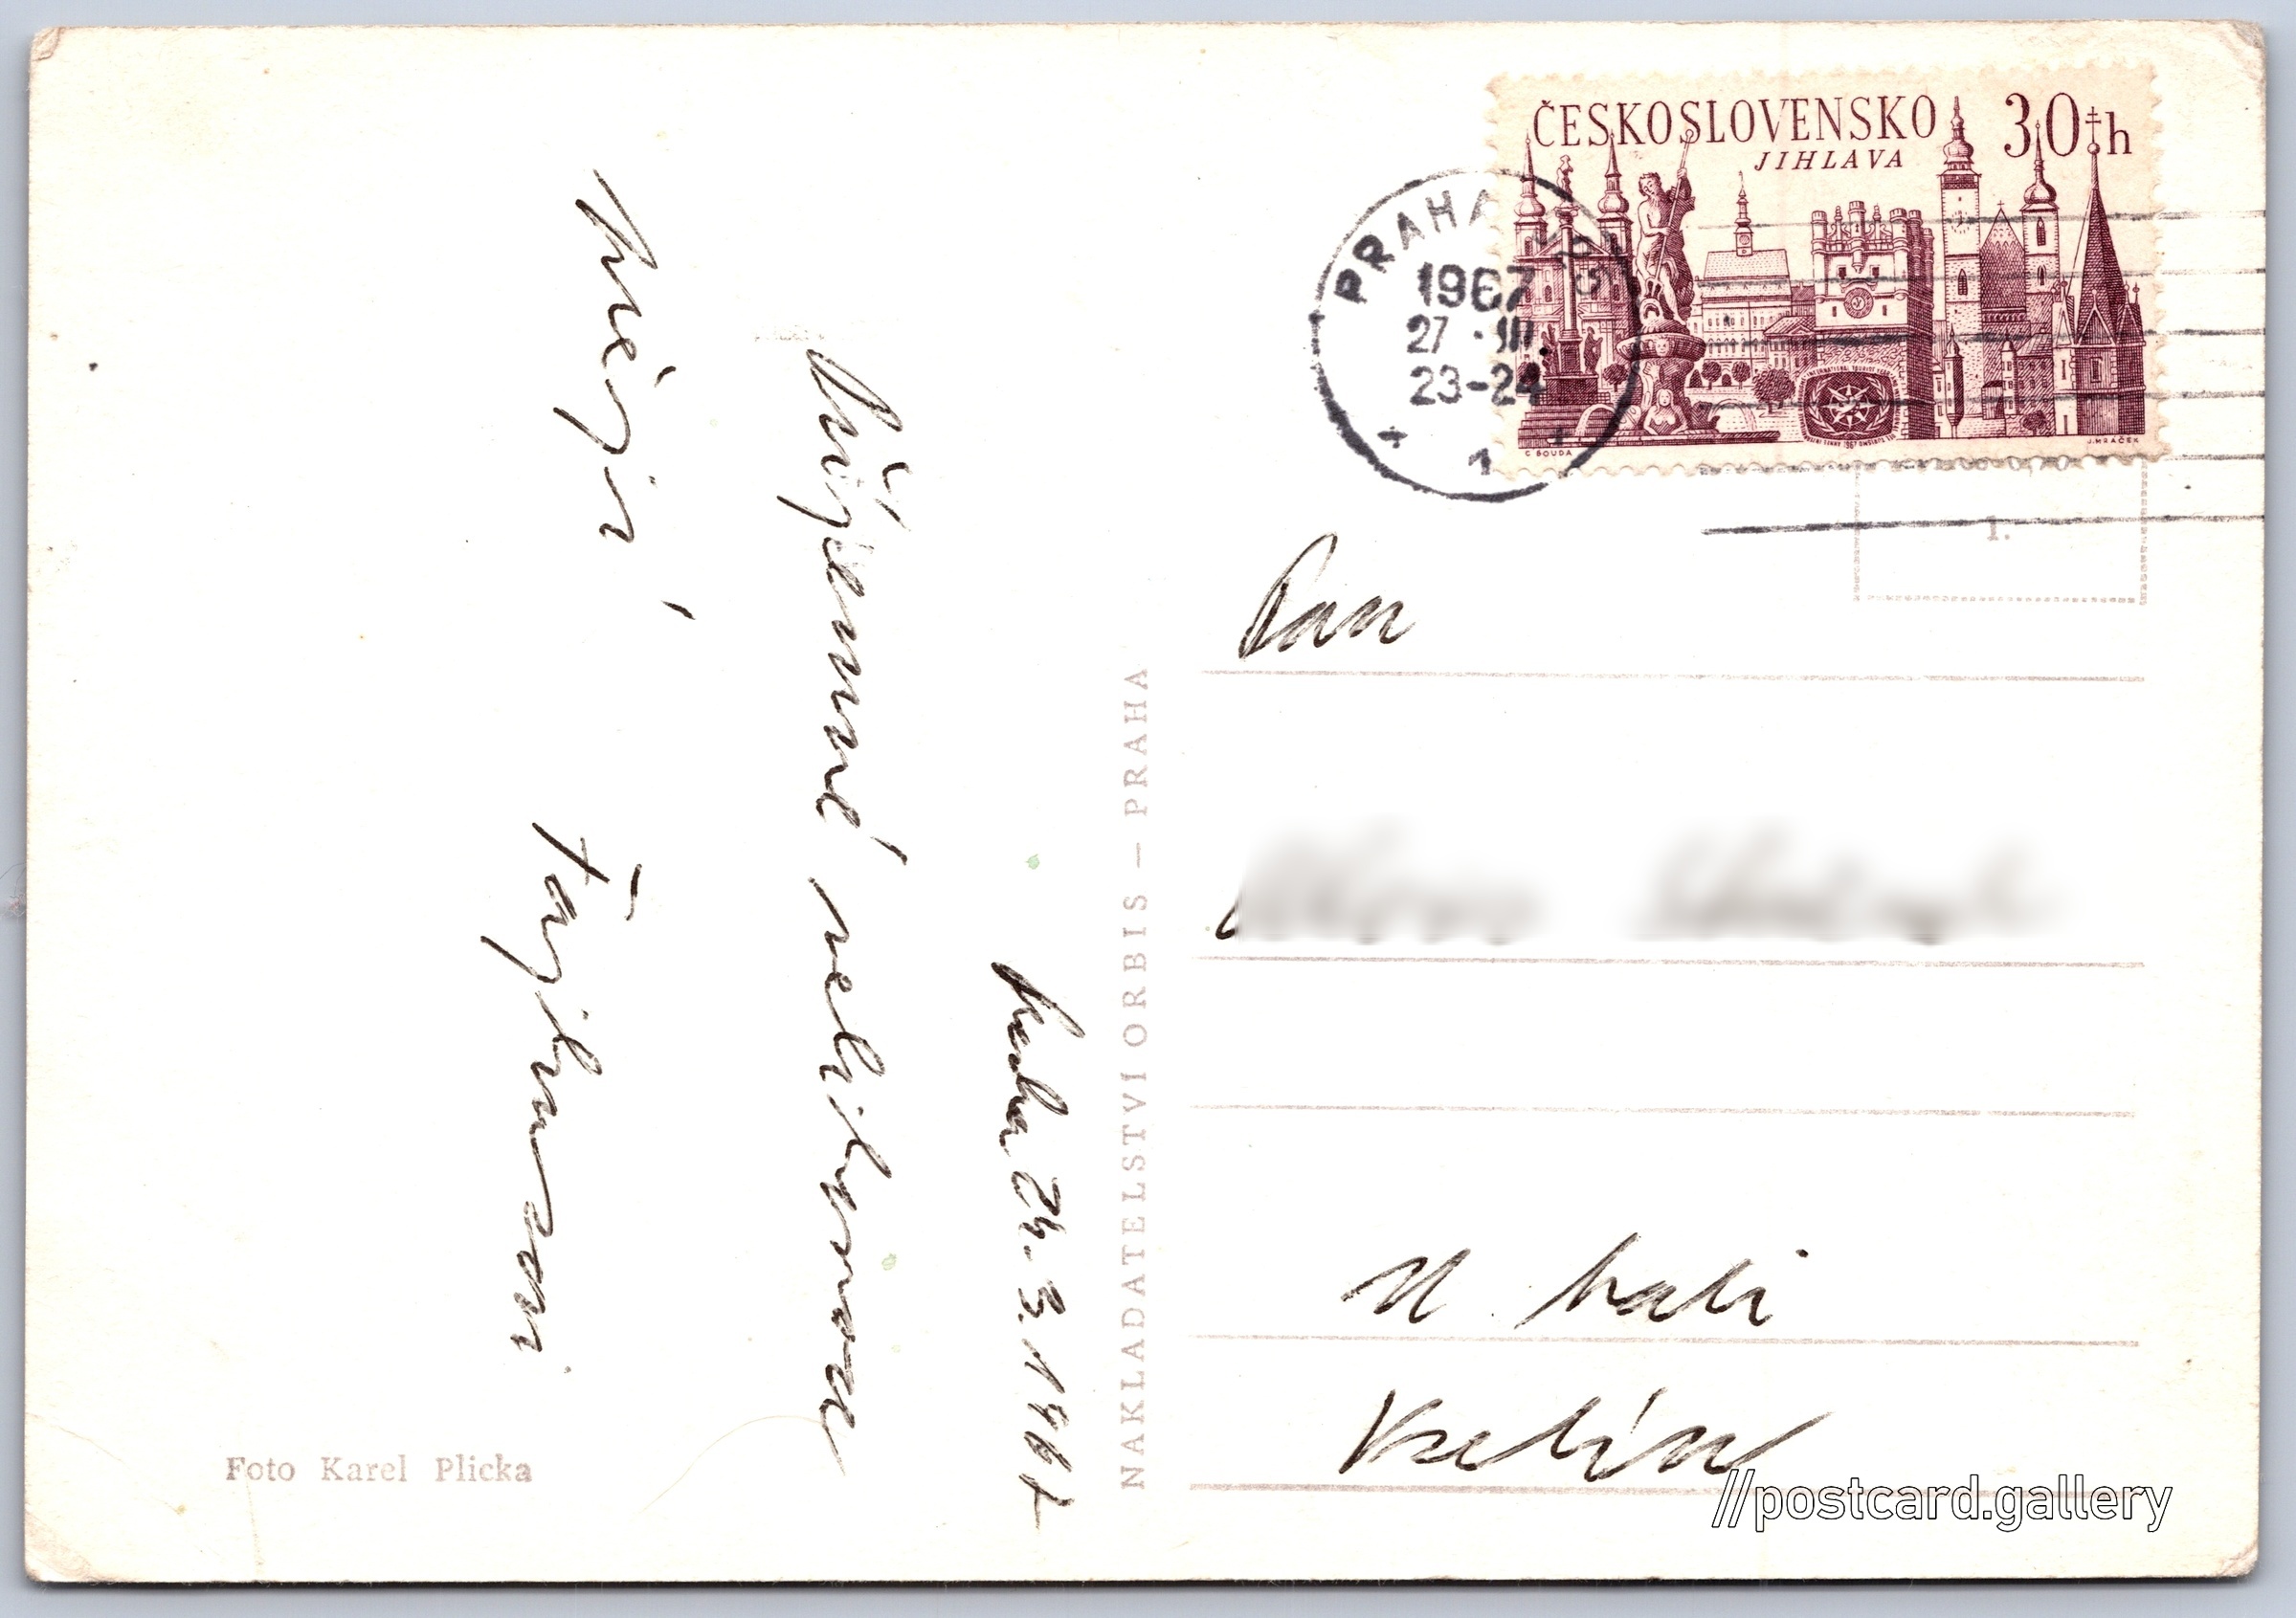 ČESKOSLOVENSKO 30 h
JIHLAVA
C BOUDA
J. MRÁČEK
PRAHA
1967
27 · III.
23-24
1
1.
Praha 24. 3. 1967
Příjemné velikonoce
přejí
Pan
Vsetín
NAKLADATELSTVI ORBIS — PRAHA
Foto Karel Plicka
//postcard.gallery